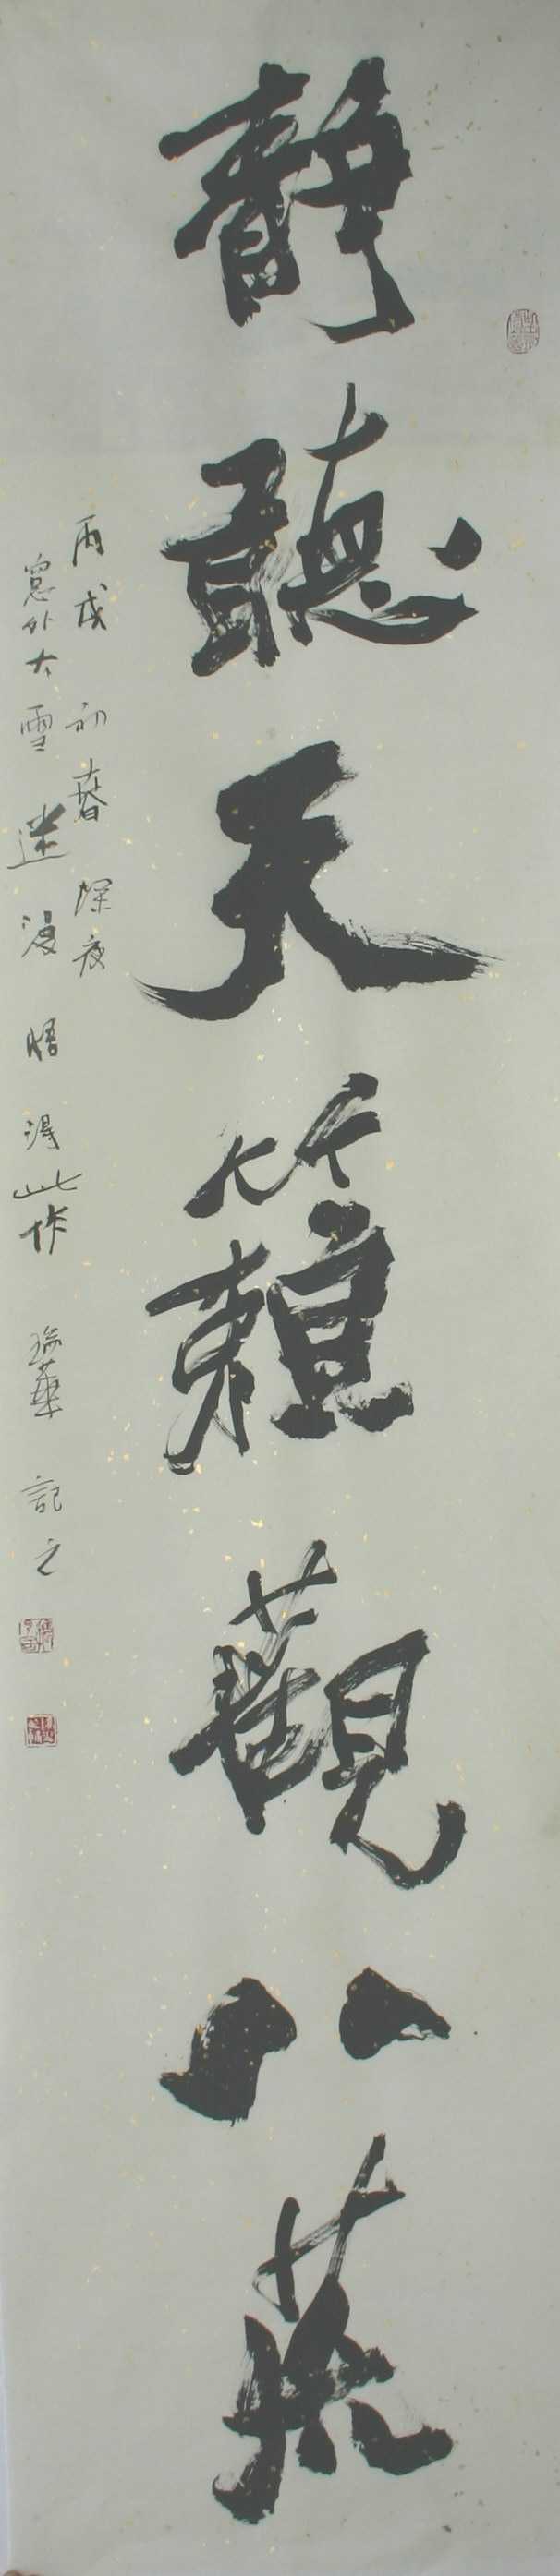 靜聽天籟觀八荒
丙戌初春深夜
窗外大雪迷漫悟得此作瑞華記之